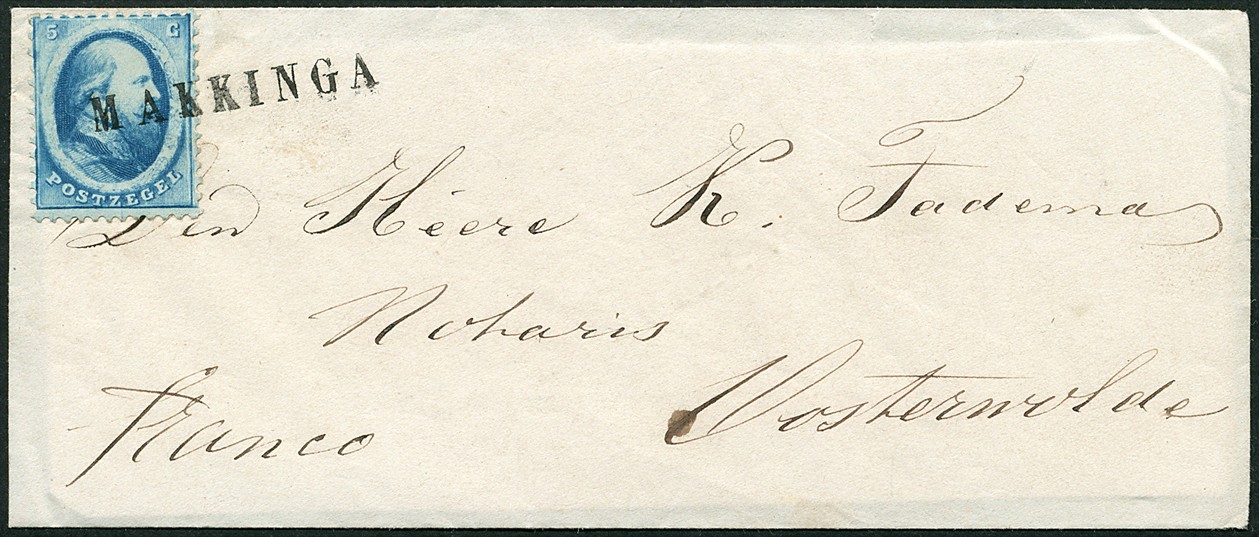 5 C
MAKKINGA
POSTZEGEL
Den Heere K. Fadema
Notaris
Oosterwolde
Franco